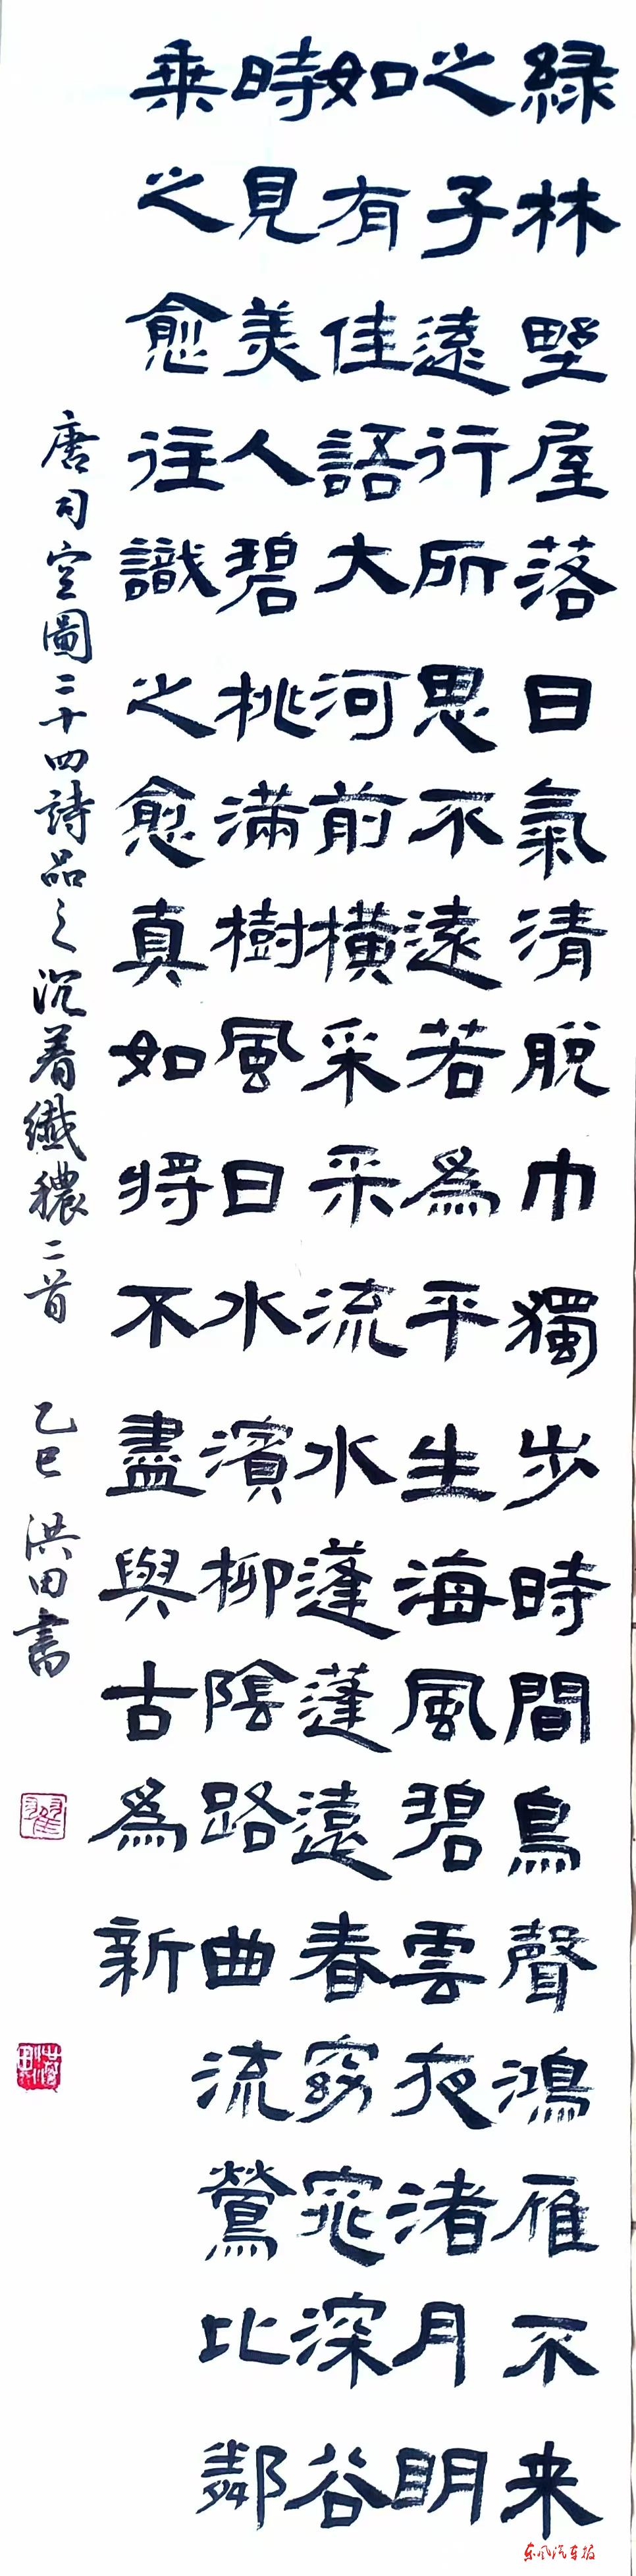 緑林野屋落日氣清脱巾獨步時間鳥聲鴻雁不来
之子遠行所思不遠若爲平生海風碧雲夜渚月明
如有佳語大河前橫采采流水蓬蓬遠春窈窕深谷
時見美人碧桃滿樹風日水濱柳陰路曲流鶯比鄰
乗之愈往識之愈真如將不盡與古爲新
唐司空圖二十四詩品之沉着纖穠二首 乙巳 洪田書
翟
东风汽车报